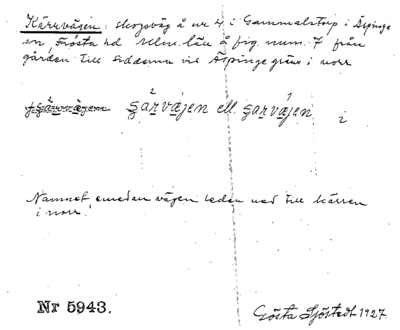 Kärrvägen: skogsväg å nr 4 i Gammalstorp i Äspinge
sn, Frosta hd Malm. län å fig. num. 7 från
gården till sidorna vid Äspinge gräns i norr
šärväjen ell. šarväjen i
Namnet emedan vägen leder ned till kärren
i norr.
Nr 5943.
Gösta Sjöstedt 1927